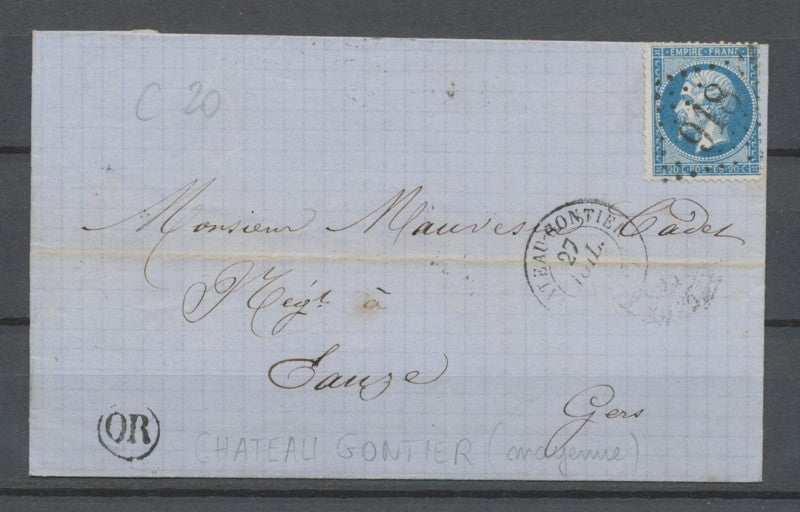 C 20
EMPIRE FRANC
918
20 C POSTES 20 C
Monsieur Mauvesin Cadet
TEAU-GONTIER
27
JUIL.
Négt à
Eauze
Gers
OR
CHATEAU GONTIER (mayenne)